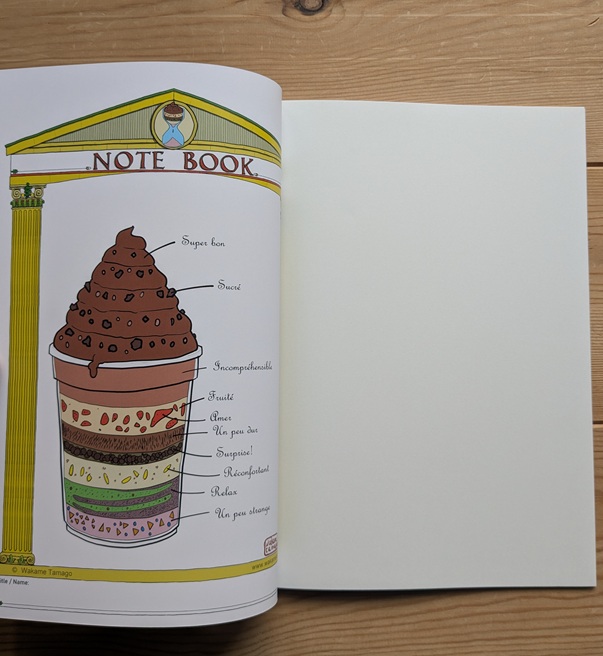 NOTE BOOK
Super bon
Sucré
Incompréhensible
Fruité
Amer
Un peu dur
Surprise!
Réconfortant
Relax
Un peu strange
© Wakame Tamago
Title / Name: